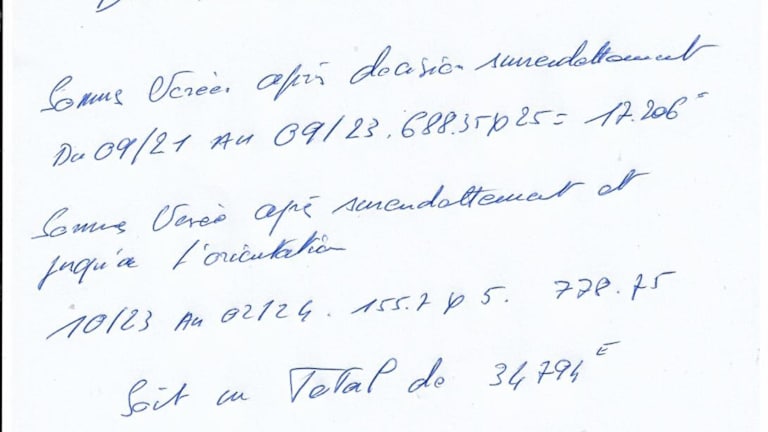 Sommes Versées après decision surendettement
Du 09/21 AU 09/23. 688.35 x 25 = 17.206
Sommes Versées après surendettement et
jusqu'a l'orientation
10/23 AU 02/24. 155.7 x 5. 778.75
Soit un Total de 34794 E